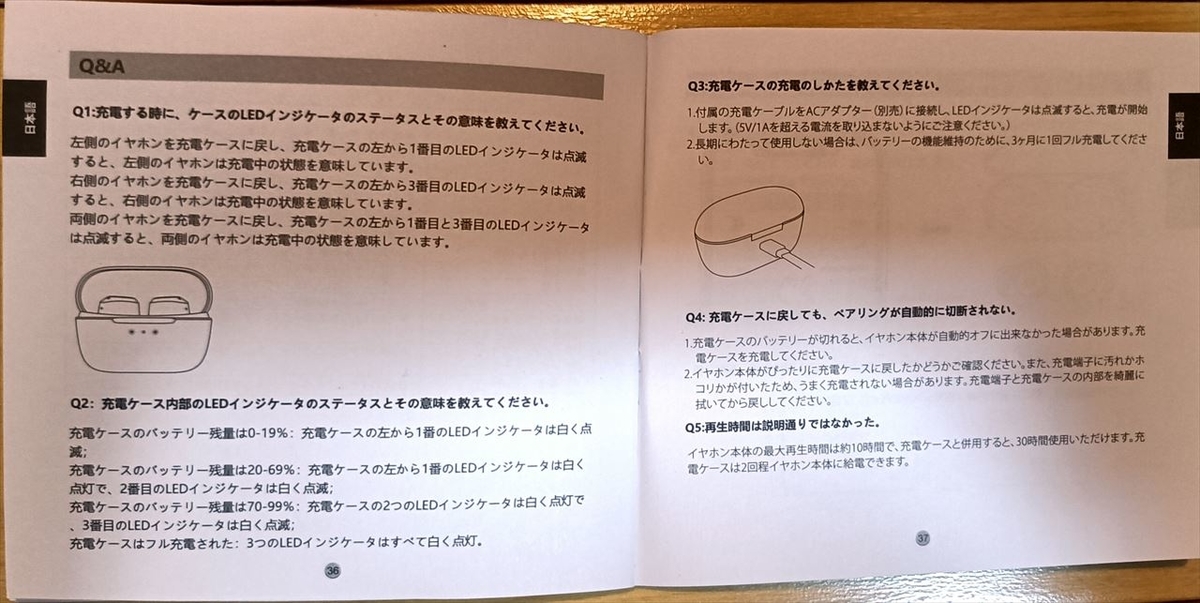 Q&A
日本語
Q1:充電する時に、ケースのLEDインジケータのステータスとその意味を教えてください。
左側のイヤホンを充電ケースに戻し、充電ケースの左から1番目のLEDインジケータは点滅
すると、左側のイヤホンは充電中の状態を意味しています。
右側のイヤホンを充電ケースに戻し、充電ケースの左から3番目のLEDインジケータは点滅
すると、右側のイヤホンは充電中の状態を意味しています。
両側のイヤホンを充電ケースに戻し、充電ケースの左から1番目と3番目のLEDインジケータ
は点滅すると、両側のイヤホンは充電中の状態を意味しています。
Q2: 充電ケース内部のLEDインジケータのステータスとその意味を教えてください。
充電ケースのバッテリー残量は0-19%: 充電ケースの左から1番のLEDインジケータは白く点
滅;
充電ケースのバッテリー残量は20-69%: 充電ケースの左から1番のLEDインジケータは白く
点灯で、2番目のLEDインジケータは白く点滅;
充電ケースのバッテリー残量は70-99%: 充電ケースの2つのLEDインジケータは白く点灯で
、3番目のLEDインジケータは白く点滅;
充電ケースはフル充電された: 3つのLEDインジケータはすべて白く点灯。
36
Q3:充電ケースの充電のしかたを教えてください。
1.付属の充電ケーブルをACアダプター(別売)に接続し、LEDインジケータは点滅すると、充電が開始
します。(5V/1Aを超える電流を取り込まないようにご注意ください。)
2.長期にわたって使用しない場合は、バッテリーの機能維持のために、3ヶ月に1回フル充電してくださ
い。
日本語
Q4: 充電ケースに戻しても、ペアリングが自動的に切断されない。
1.充電ケースのバッテリーが切れると、イヤホン本体が自動的オフに出来なかった場合があります。充
電ケースを充電してください。
2.イヤホン本体がぴったりに充電ケースに戻したかどうかご確認ください。また、充電端子に汚れかホ
コリかが付いたため、うまく充電されない場合があります。充電端子と充電ケースの内部を綺麗に
拭いてから戻ししてください。
Q5:再生時間は説明通りではなかった。
イヤホン本体の最大再生時間は約10時間で、充電ケースと併用すると、30時間使用いただけます。充
電ケースは2回程イヤホン本体に給電できます。
37